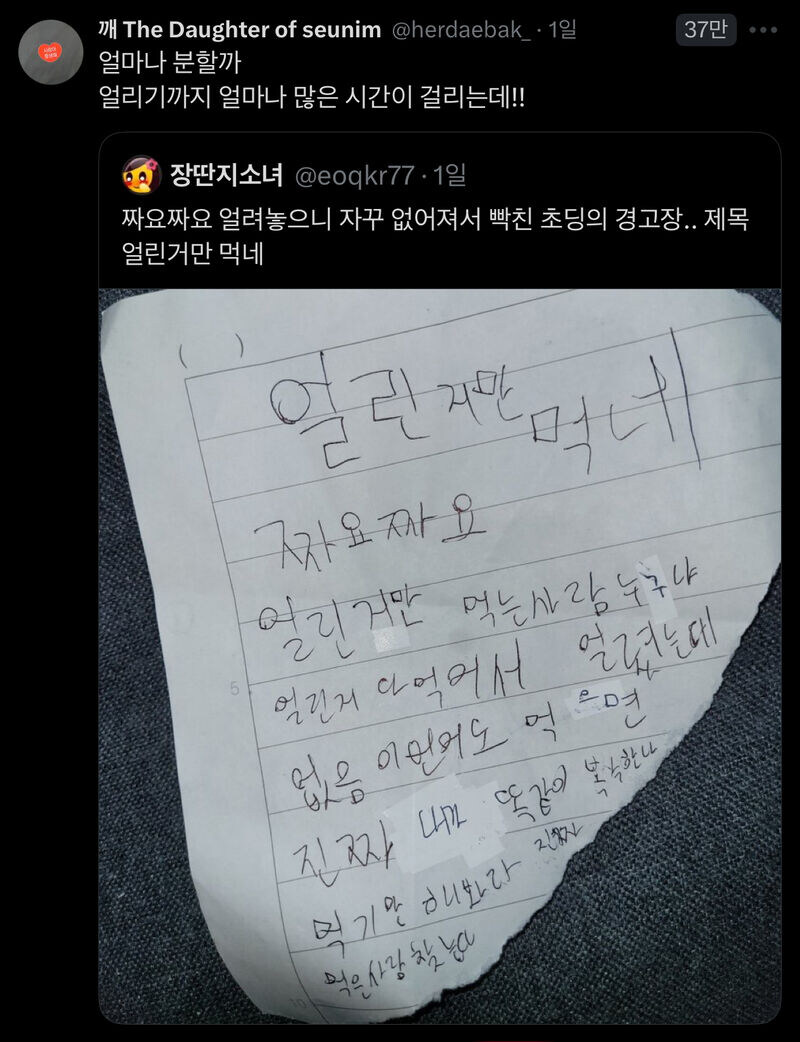 깨 The Daughter of seunim @herdaebak_ · 1일 37만
얼마나 분할까
얼리기까지 얼마나 많은 시간이 걸리는데!!
장딴지소녀 @eoqkr77 · 1일
짜요짜요 얼려놓으니 자꾸 없어져서 빡친 초딩의 경고장.. 제목
얼린거만 먹네
( )
얼린거만 먹네
짜요짜요
얼린거만 먹는사람 누구냐
5 얼린거 다먹어서 얼렸는데
없음 이번에도 먹으면
진짜 내가 똑같이 복수한다
먹기만 해봐라 진짜
먹은사람 찾는다
10